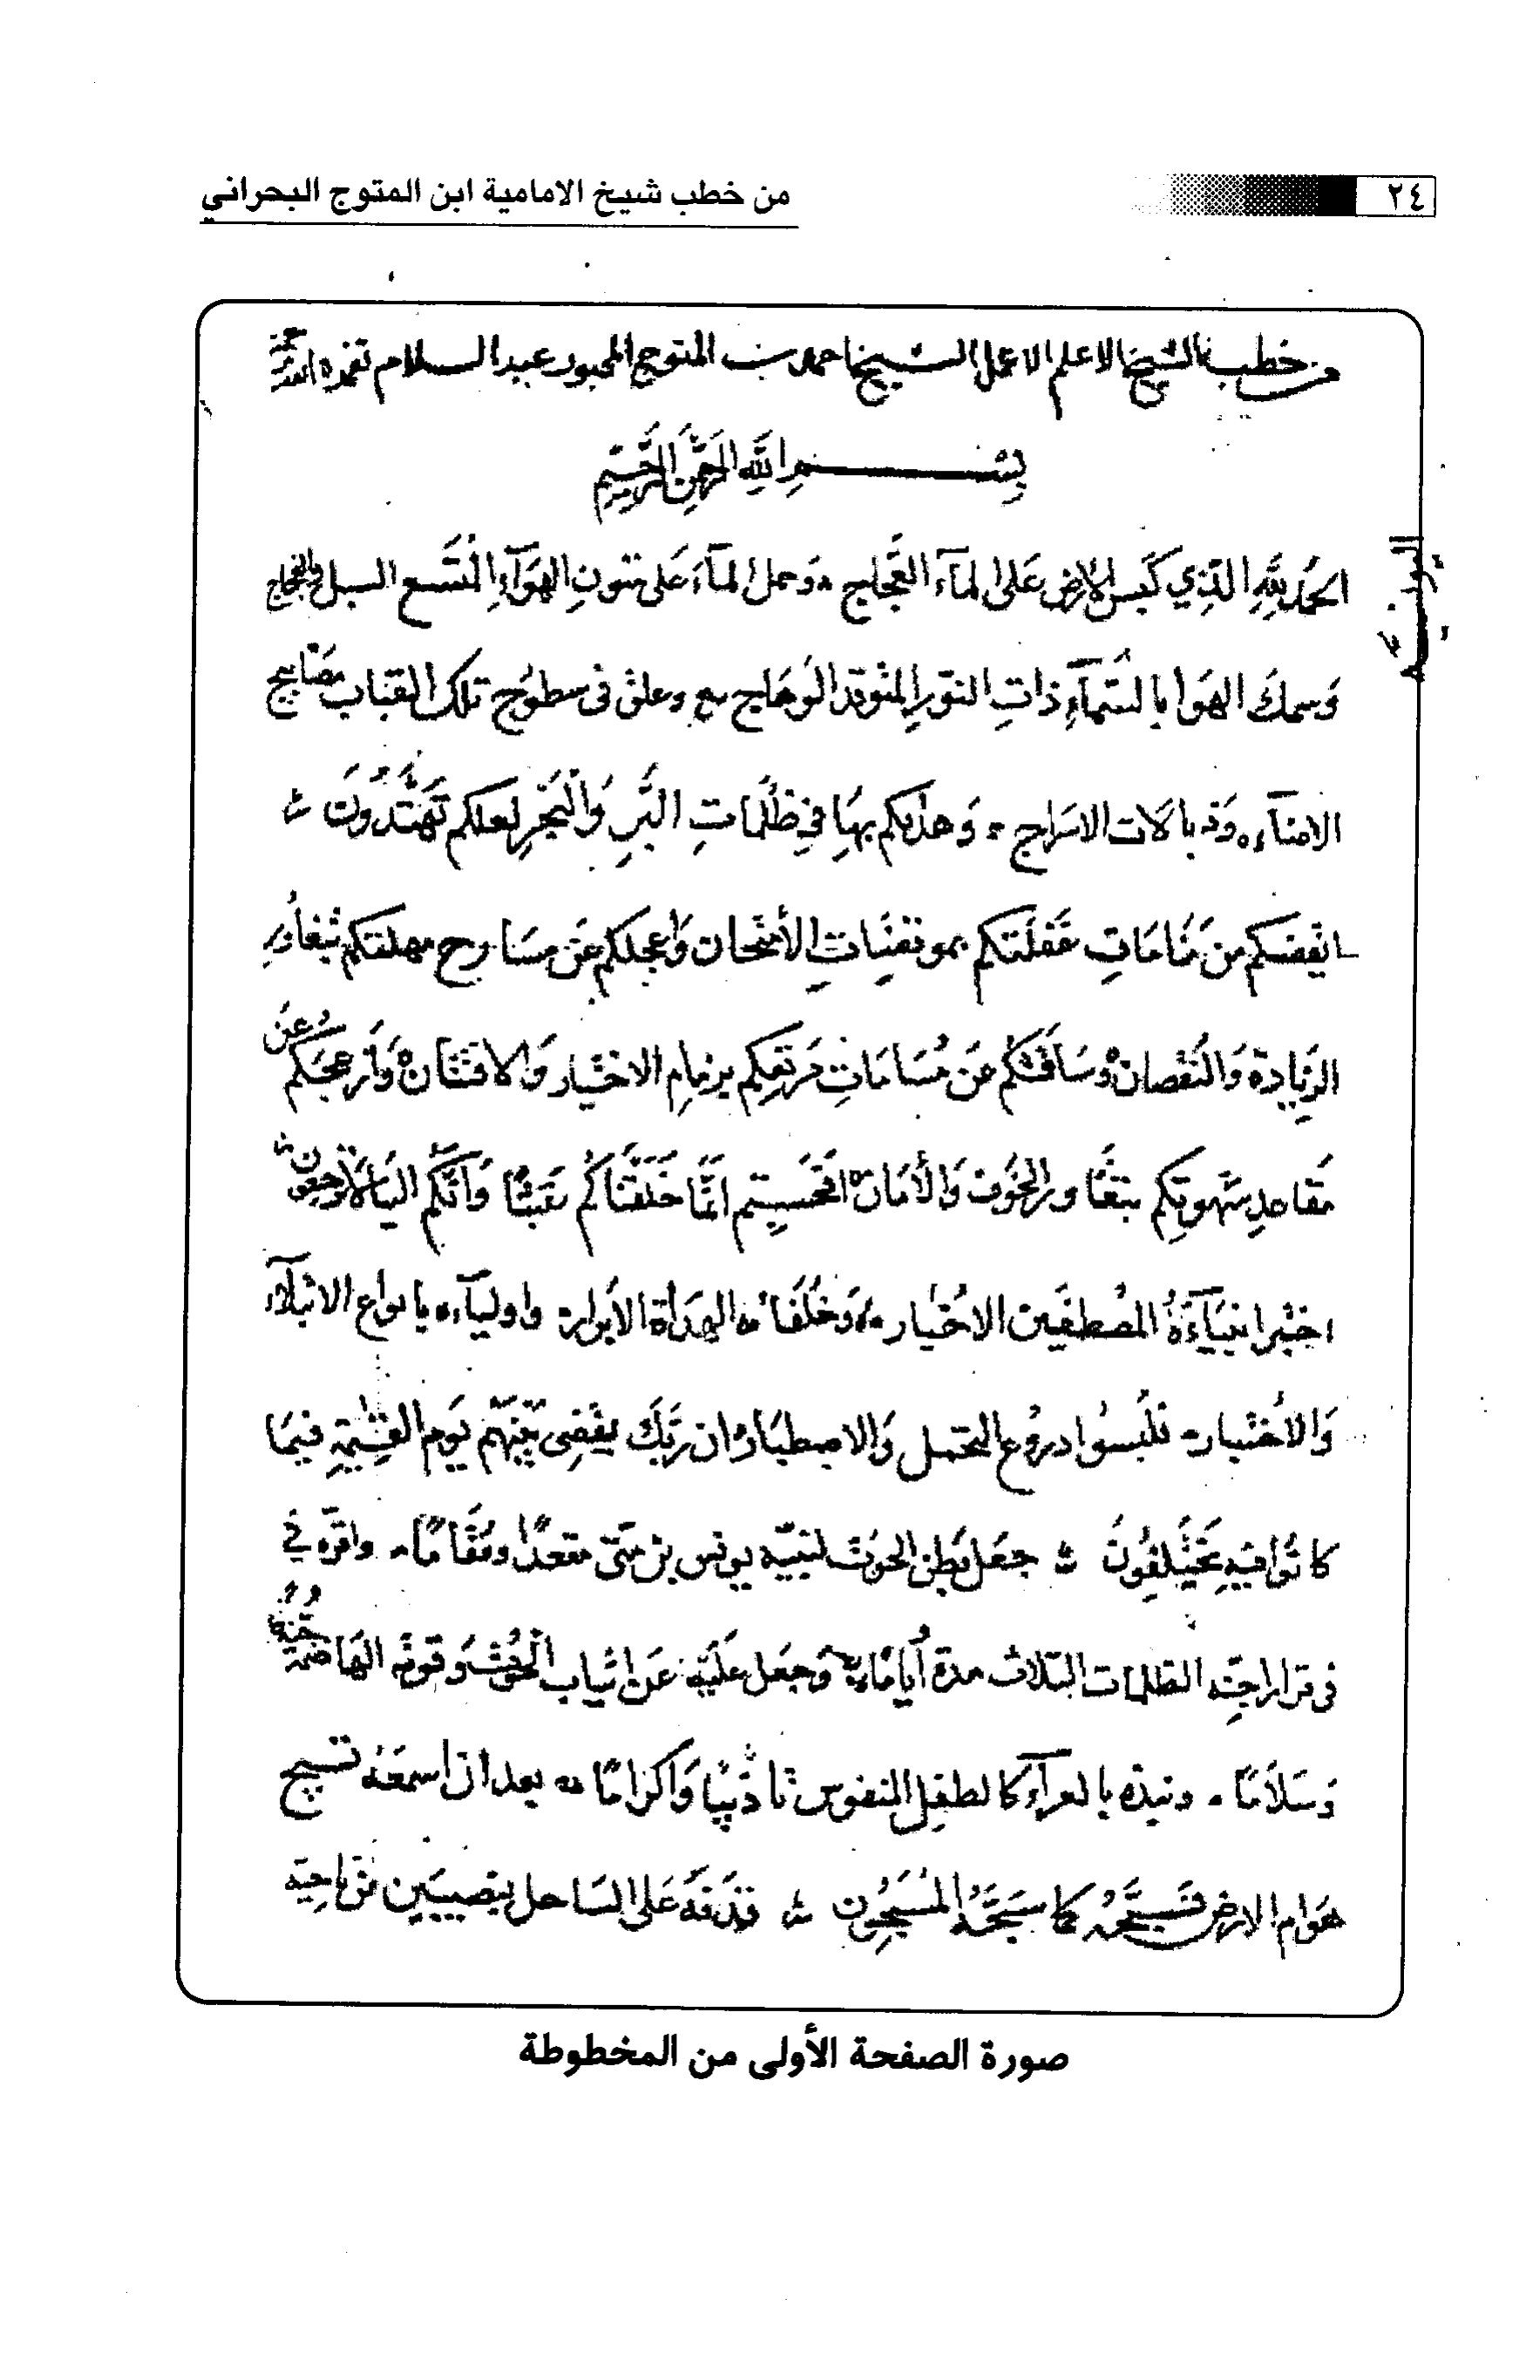 ٢٤
من خطب شيخ الامامية ابن المتوج البحراني
من خطب الشيخ الاعلم الاعمل الشيخ احمد بن المتوج المحبور عبد السلام تغمده الله
بسم الله الرحمن الرحيم
الحَمدُ لِلَّهِ الَّذِي كَبَسَ الارض عَلى المآء العَجّاج وَحمل المآءَ عَلى متونِ الهَوآءِ المُتَّسع السبل والفجاج
وَسمكَ الهَوا بالسَّمآءِ ذاتِ النّورِ المتوقد الوَهاج وعلق فى سطوح تلك القباب مصَابيح
الامناء وَذبالات الاسراج وَهداكم بهَا في ظلُمَاتِ البَرِ وَالبَحْرِ لعلكم تَهتَدُونَ
ايقضكم من مَنَامَاتِ غَفلَتكم بموقضَاتِ الأمتحان وَاعجلكم عَن مسَارح مهلتكم
الزِيادة وَالنقصان وسَاقكم عَن مُسَامَاتِ مَرتعِكم بزمامِ الاختيار وَالافتتان وَازعجكم عَن
مَقاعدِ شهوتِكم بتغاور الخَوف وَالأمان افحَسِبتم انَّما خَلَقنَاكُم عَبَثًا وَانَّكم الينَا لا ترجعون
اختبر انبيَآءَهُ المُصْطفَين الاخيار وَخُلَفاءه الهدَاة الابرار واوليآءه بانواع الابتلآء
وَالأختبار فلبسُوا دروع التحمل وَالاصطبار ان رَبّكَ يقضِى بَينَهُم يَوم القِيٰمةِ فيمَا
كانُوا فيهِ يَختَلِفُونَ جعَل بَطن الحوت لنبيّه يونس بن متّى مقعدًا ومُقَامًا واقرّه في
فى قرار اجنّه الظلمات الثلاث مدة أيامًا وَجعَل عَلَيه عَن انياب الحُوت وَقوته الهَاضمة جُنة
وَسَلاَمًا ونبذه بالعرآء كالطفِل المنفوس تاديبًا وَاكرامًا بعد ان اسمعَه تسبيح
هَوام الارض فسبَّحَه كما سَبَّحَهُ المُسَبِّحُون فقذفَهُ عَلى السَاحل بنصِيبَين من نَاحية
صورة الصفحة الأولى من المخطوطة